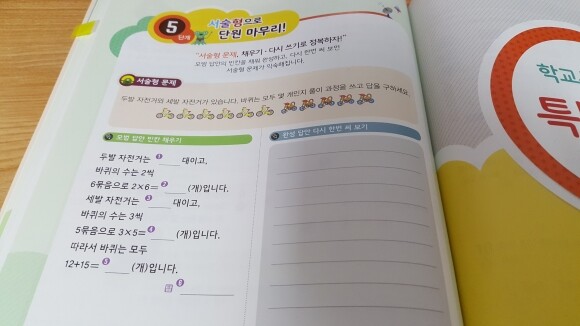 5 단계
서술형으로
단원 마무리!
"서술형 문제, 채우기·다시 쓰기로 정복하자!"
모범 답안의 빈칸을 채워 완성하고, 다시 한번 써 보면
서술형 문제가 익숙해집니다.
서술형 문제
두발 자전거와 세발 자전거가 있습니다. 바퀴는 모두 몇 개인지 풀이 과정을 쓰고 답을 구하세요.
모범 답안 빈칸 채우기
두발 자전거는 ❶ 대이고,
바퀴의 수는 2씩
6묶음으로 2×6= ❷ (개)입니다.
세발 자전거는 ❸ 대이고,
바퀴의 수는 3씩
5묶음으로 3×5= ❹ (개)입니다.
따라서 바퀴는 모두
12+15= ❺ (개)입니다.
답 ❻
완성 답안 다시 한번 써 보기
학교
특